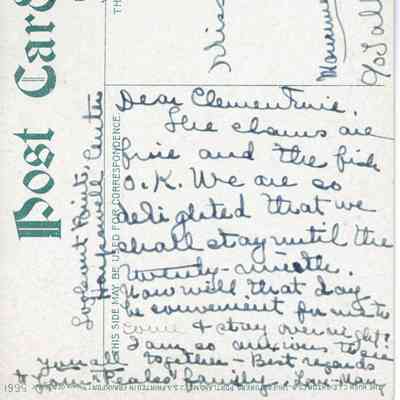 Post Card
THIS SIDE MAY BE USED FOR CORRESPONDENCE.
Miss
Dear Clementine.
The clams are
fine and the fish
O.K. We are so
delighted that we
shall stay until the
twenty-ninth.
How will that day
be convenient for me to
come & stay over night?
I am so anxious to see
you all together - Best regards
to "Peales" family. Love - Mary
Lookout Point,
Harpswell Center
5661